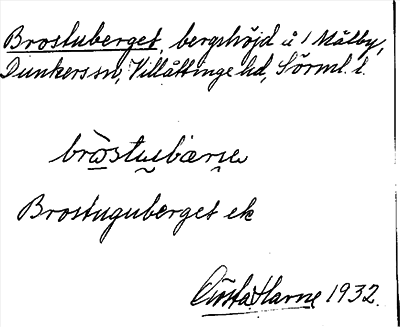 Brostuberget, bergshöjd å 1 Målby,
Dunkers sn, Villåttinge hd, Sörml. l.
bròstubærje
Brostuguberget ek
Gösta Harne 1932.